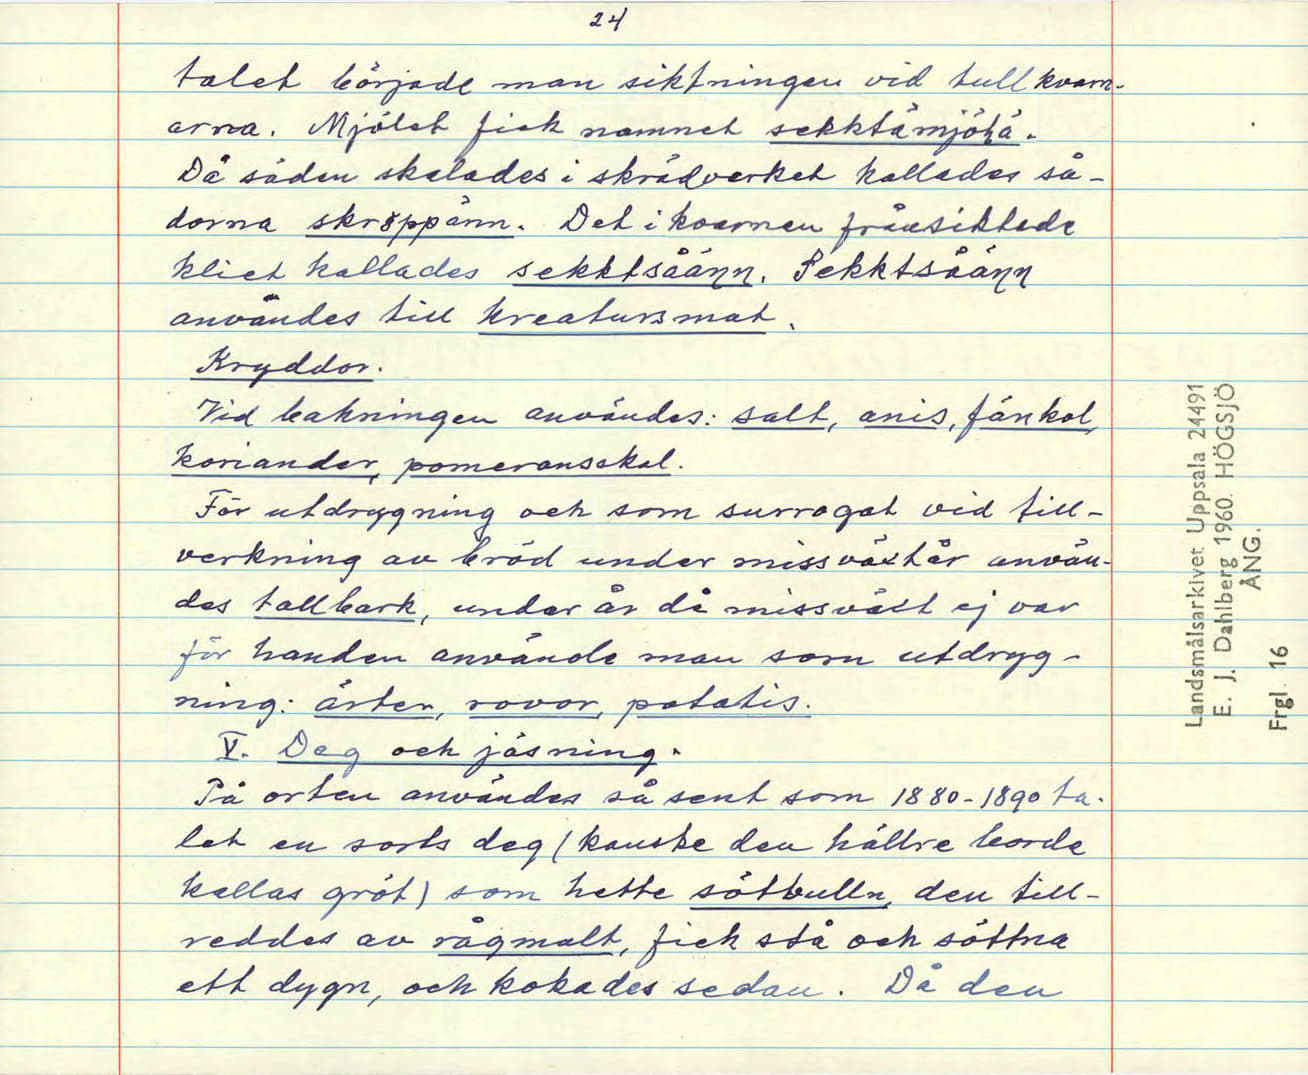 24
talet började man siktningen vid tullkvarn-
arna. Mjölet fick namnet sekktämjöḥä.
Då säden skalades i skrädverket kallades så-
dorna skröppänn. Det i kvarnen frånsiktade
kliet kallades sekktsåäņņ. Sekktsåäņņ
användes till kreatursmat.
Kryddor.
Vid bakningen användes: salt, anis, fänkol,
koriander, pomeransskal.
För utdrygning och som surrogat vid till-
verkning av bröd under missväxtår använ-
des tallbark, under år då missväxt ej var
för handen använde man som utdryg-
ning: ärter, rovor, potatis.
V. Deg och jäsning.
På orten användes så sent som 1880-1890 ta-
let en sorts deg (kanske den hällre borde
kallas gröt) som hette sötbulln, den till-
reddes av rågmalt, fick stå och söttna
ett dygn, och kokades sedan. Då den
Landsmålsarkivet Uppsala 24491
E. J. Dahlberg 1960. HÖGSJÖ
ÅNG.
Frgl. 16